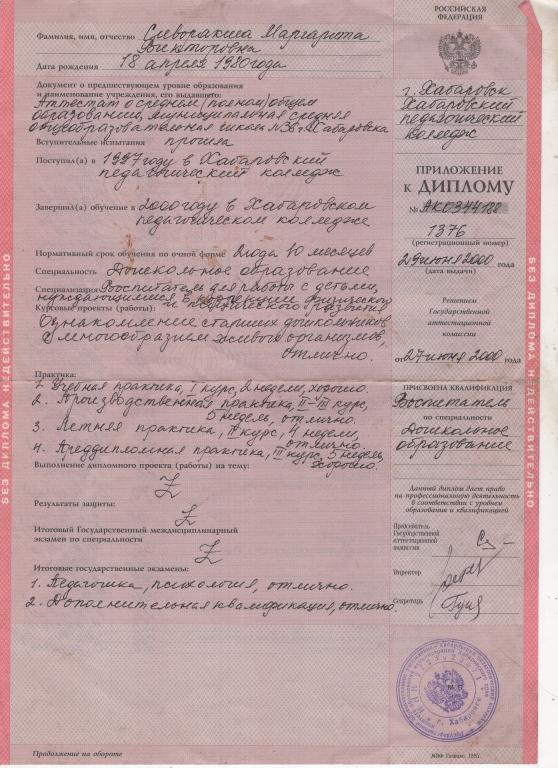 Фамилия, имя, отчество Сиворакша Маргарита
Викторовна
Дата рождения 18 апреля 1980 года
Документ о предшествующем уровне образования
и наименование учреждения, его выдавшего:
Аттестат о среднем (полном) общем
образовании, муниципальная средняя
общеобразовательная школа №38 г. Хабаровска
Вступительные испытания прошла
Поступил(а) в 1997 году в Хабаровский
педагогический колледж
Завершил(а) обучение в 2000 году в Хабаровском
педагогическом колледже
Нормативный срок обучения по очной форме 2 года 10 месяцев
Специальность Дошкольное образование
Специализация Воспитатель для работы с детьми,
нуждающимися в коррекции физического
Курсовые проекты (работы): и психического развития
Ознакомление старших дошкольников
с многообразием живых организмов,
отлично.
Практика:
1. Учебная практика, I курс, 2 недели, хорошо.
2. Производственная практика, II-III курс,
5 недель, отлично.
3. Летняя практика, II курс, 4 недели,
отлично.
4. Преддипломная практика, III курс, 5 недель,
хорошо.
Выполнение дипломного проекта (работы) на тему:
Z
Результаты защиты:
Z
Итоговый Государственный междисциплинарный
экзамен по специальности
Z
Итоговые государственные экзамены:
1. Педагогика, психология, отлично.
2. Дополнительная квалификация, отлично.
Продолжение на обороте
РОССИЙСКАЯ
ФЕДЕРАЦИЯ
г. Хабаровск
Хабаровский
педагогический
колледж
ПРИЛОЖЕНИЕ
К ДИПЛОМУ
№ АК0344188
1376
(регистрационный номер)
29 июня 2000 года
(дата выдачи)
Решением
Государственной
аттестационной
комиссии
от 27 июня 2000 года
ПРИСВОЕНА КВАЛИФИКАЦИЯ
Воспитатель
по специальности
Дошкольное
образование
Данный диплом дает право
на профессиональную деятельность
в соответствии с уровнем
образования и квалификацией
Председатель
Государственной
аттестационной
комиссии
Директор
Секретарь
М.П.
г. Хабаровск
МПФ Гознака. 1997.
БЕЗ ДИПЛОМА НЕДЕЙСТВИТЕЛЬНО
БЕЗ ДИПЛОМА НЕДЕЙСТВИТЕЛЬНО